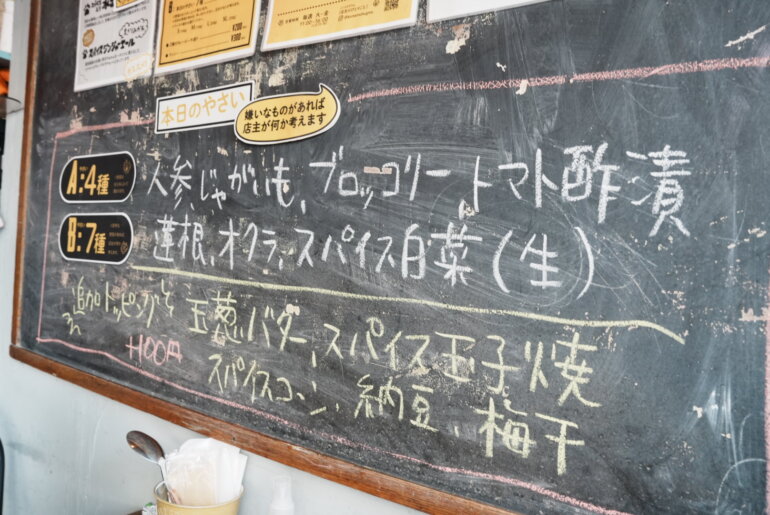 スパイスジンジャーエール
本日のやさい
嫌いなものがあれば
店主が何か考えます
A:4種
人参、じゃがいも、ブロッコリー、トマト酢漬
B:7種
蓮根、オクラ、スパイス白菜(生)
追加トッピング
玉葱、バター、スパイス玉子焼
スパイスコーン、納豆、梅干